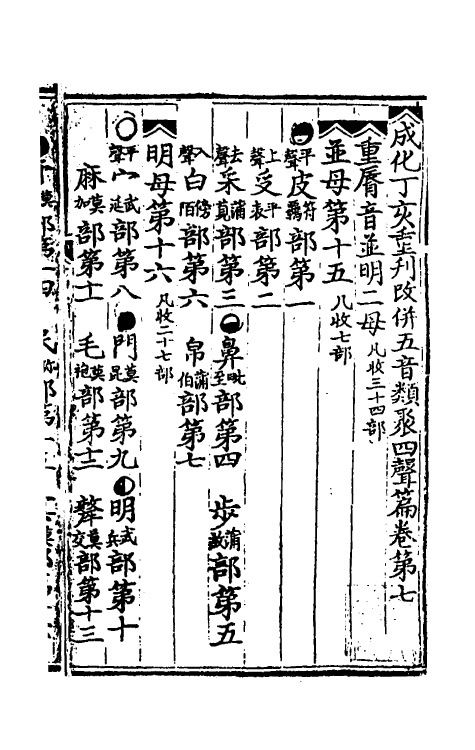 成化丁亥重刋改併五音類聚四聲篇卷第七
重脣音並明二母凡收三十四部
並母第十五 凡收七部
平聲 皮符羈部第一
上聲 受平表部第二
去聲 釆蒲莧部第三 鼻毗至部第四 步蒲故部第五
入聲 白傍陌部第六 帛蒲伯部第七
明母第十六 凡收二十七部
平聲 宀武延部第八 門莫昆部第九 明武兵部第十
麻莫加部第十一 毛莫袍部第十二 犛莫交部第十三